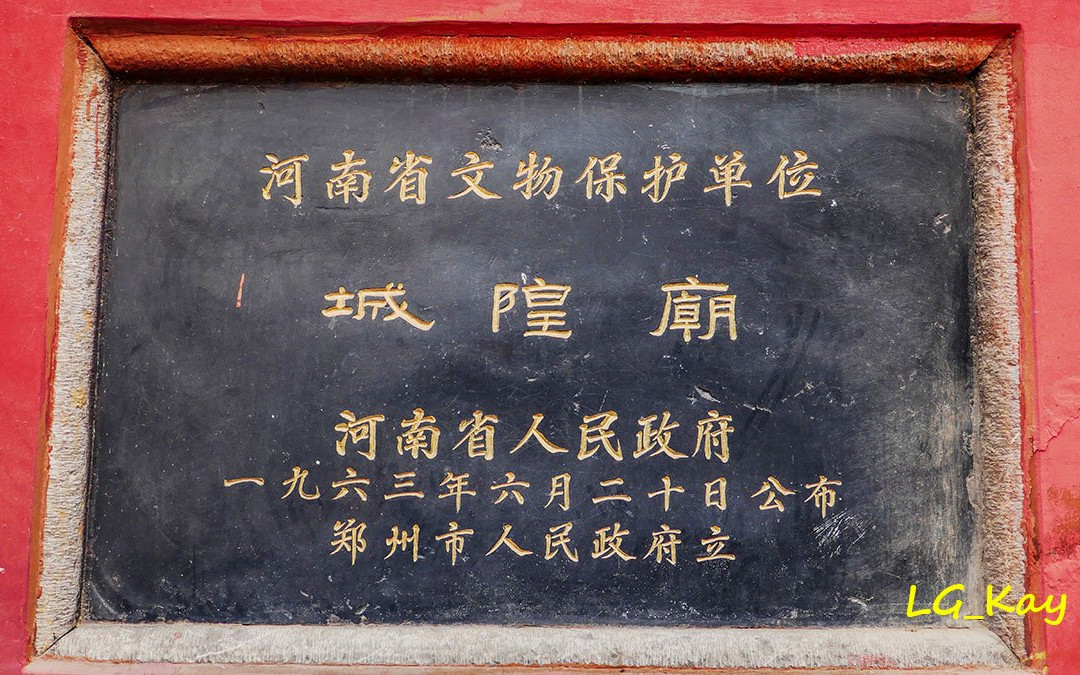 河南省文物保护单位
城隍廟
河南省人民政府
一九六三年六月二十日公布
郑州市人民政府立
LG_Kay